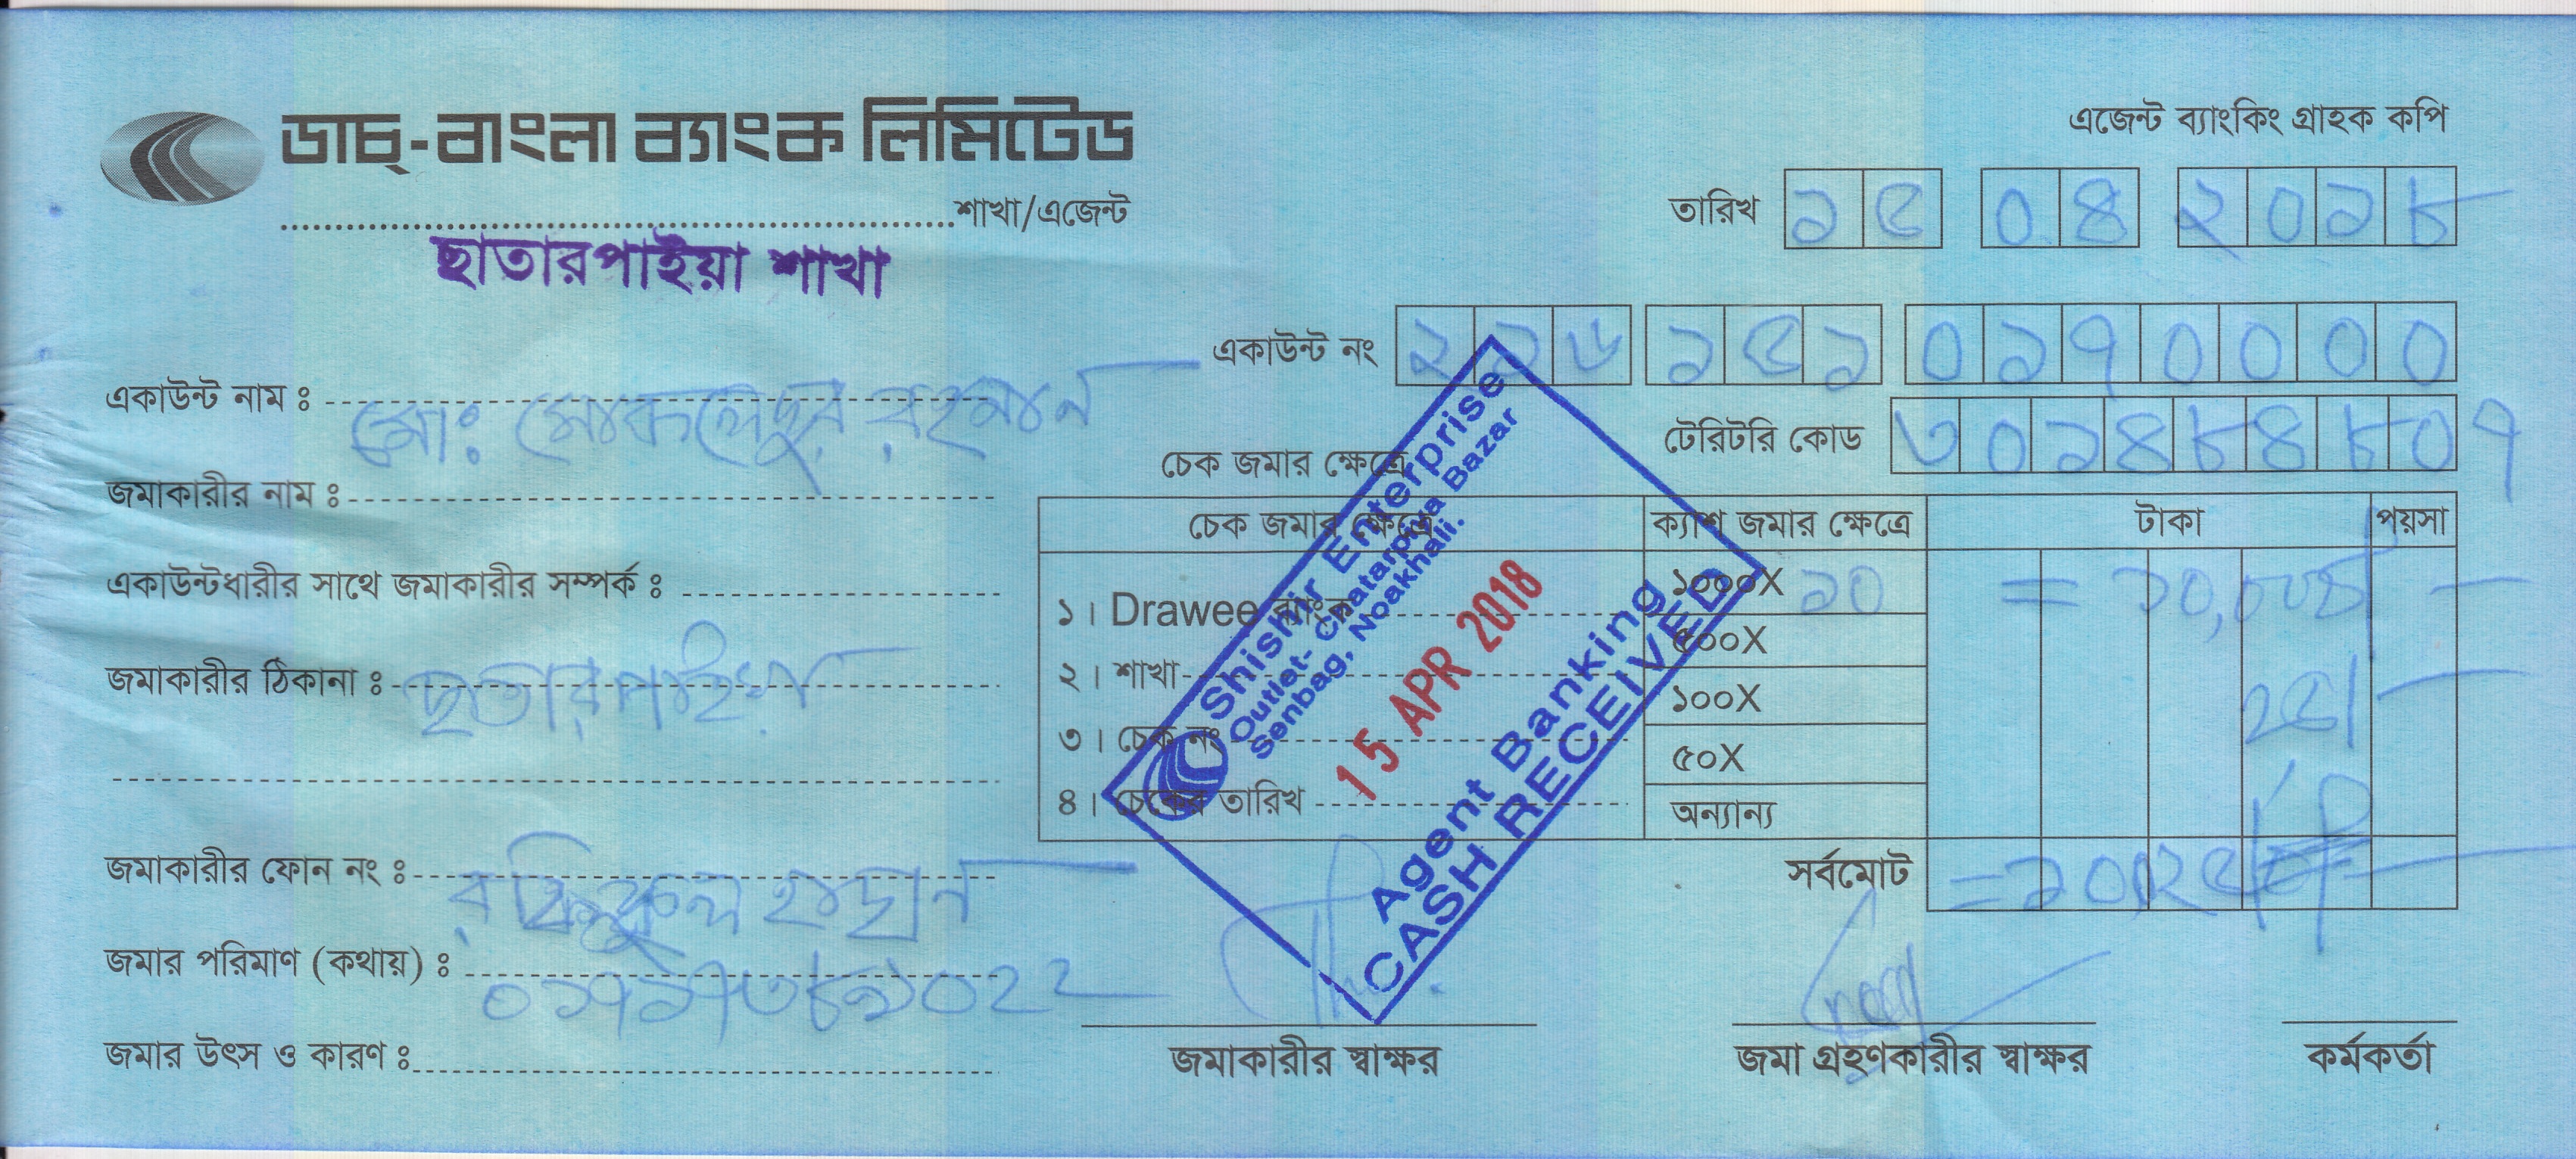 ডাচ্-বাংলা ব্যাংক লিমিটেড
শাখা/এজেন্ট
ছাতারপাইয়া শাখা
এজেন্ট ব্যাংকিং গ্রাহক কপি
তারিখ ১৫ ০৪ ২০১৮
একাউন্ট নং ২১৬ ১৫১ ০১৭০০০০
টেরিটরি কোড ৩০১৪৮৪৮০৭
একাউন্ট নাম ঃ মোঃ মোকলেছুর রহমান
জমাকারীর নাম ঃ
একাউন্টধারীর সাথে জমাকারীর সম্পর্ক ঃ
জমাকারীর ঠিকানা ঃ ছাতারপাইয়া
জমাকারীর ফোন নং ঃ
জমার পরিমাণ (কথায়) ঃ
জমার উৎস ও কারণ ঃ
চেক জমার ক্ষেত্রে
চেক জমার ক্ষেত্রে ক্যাশ জমার ক্ষেত্রে টাকা পয়সা
১। Drawee ব্যাংক
২। শাখা
৩। চেক নং
৪। চেকের তারিখ
১০০০X ১০ = ১০,০০০/-
৫০০X
১০০X ২৫/-
৫০X
অন্যান্য
সর্বমোট
Shishir Enterprise
Outlet- Chatarpaiya Bazar
Senbag, Noakhali.
15 APR 2018
Agent Banking
CASH RECEIVED
জমাকারীর স্বাক্ষর
জমা গ্রহণকারীর স্বাক্ষর
কর্মকর্তা